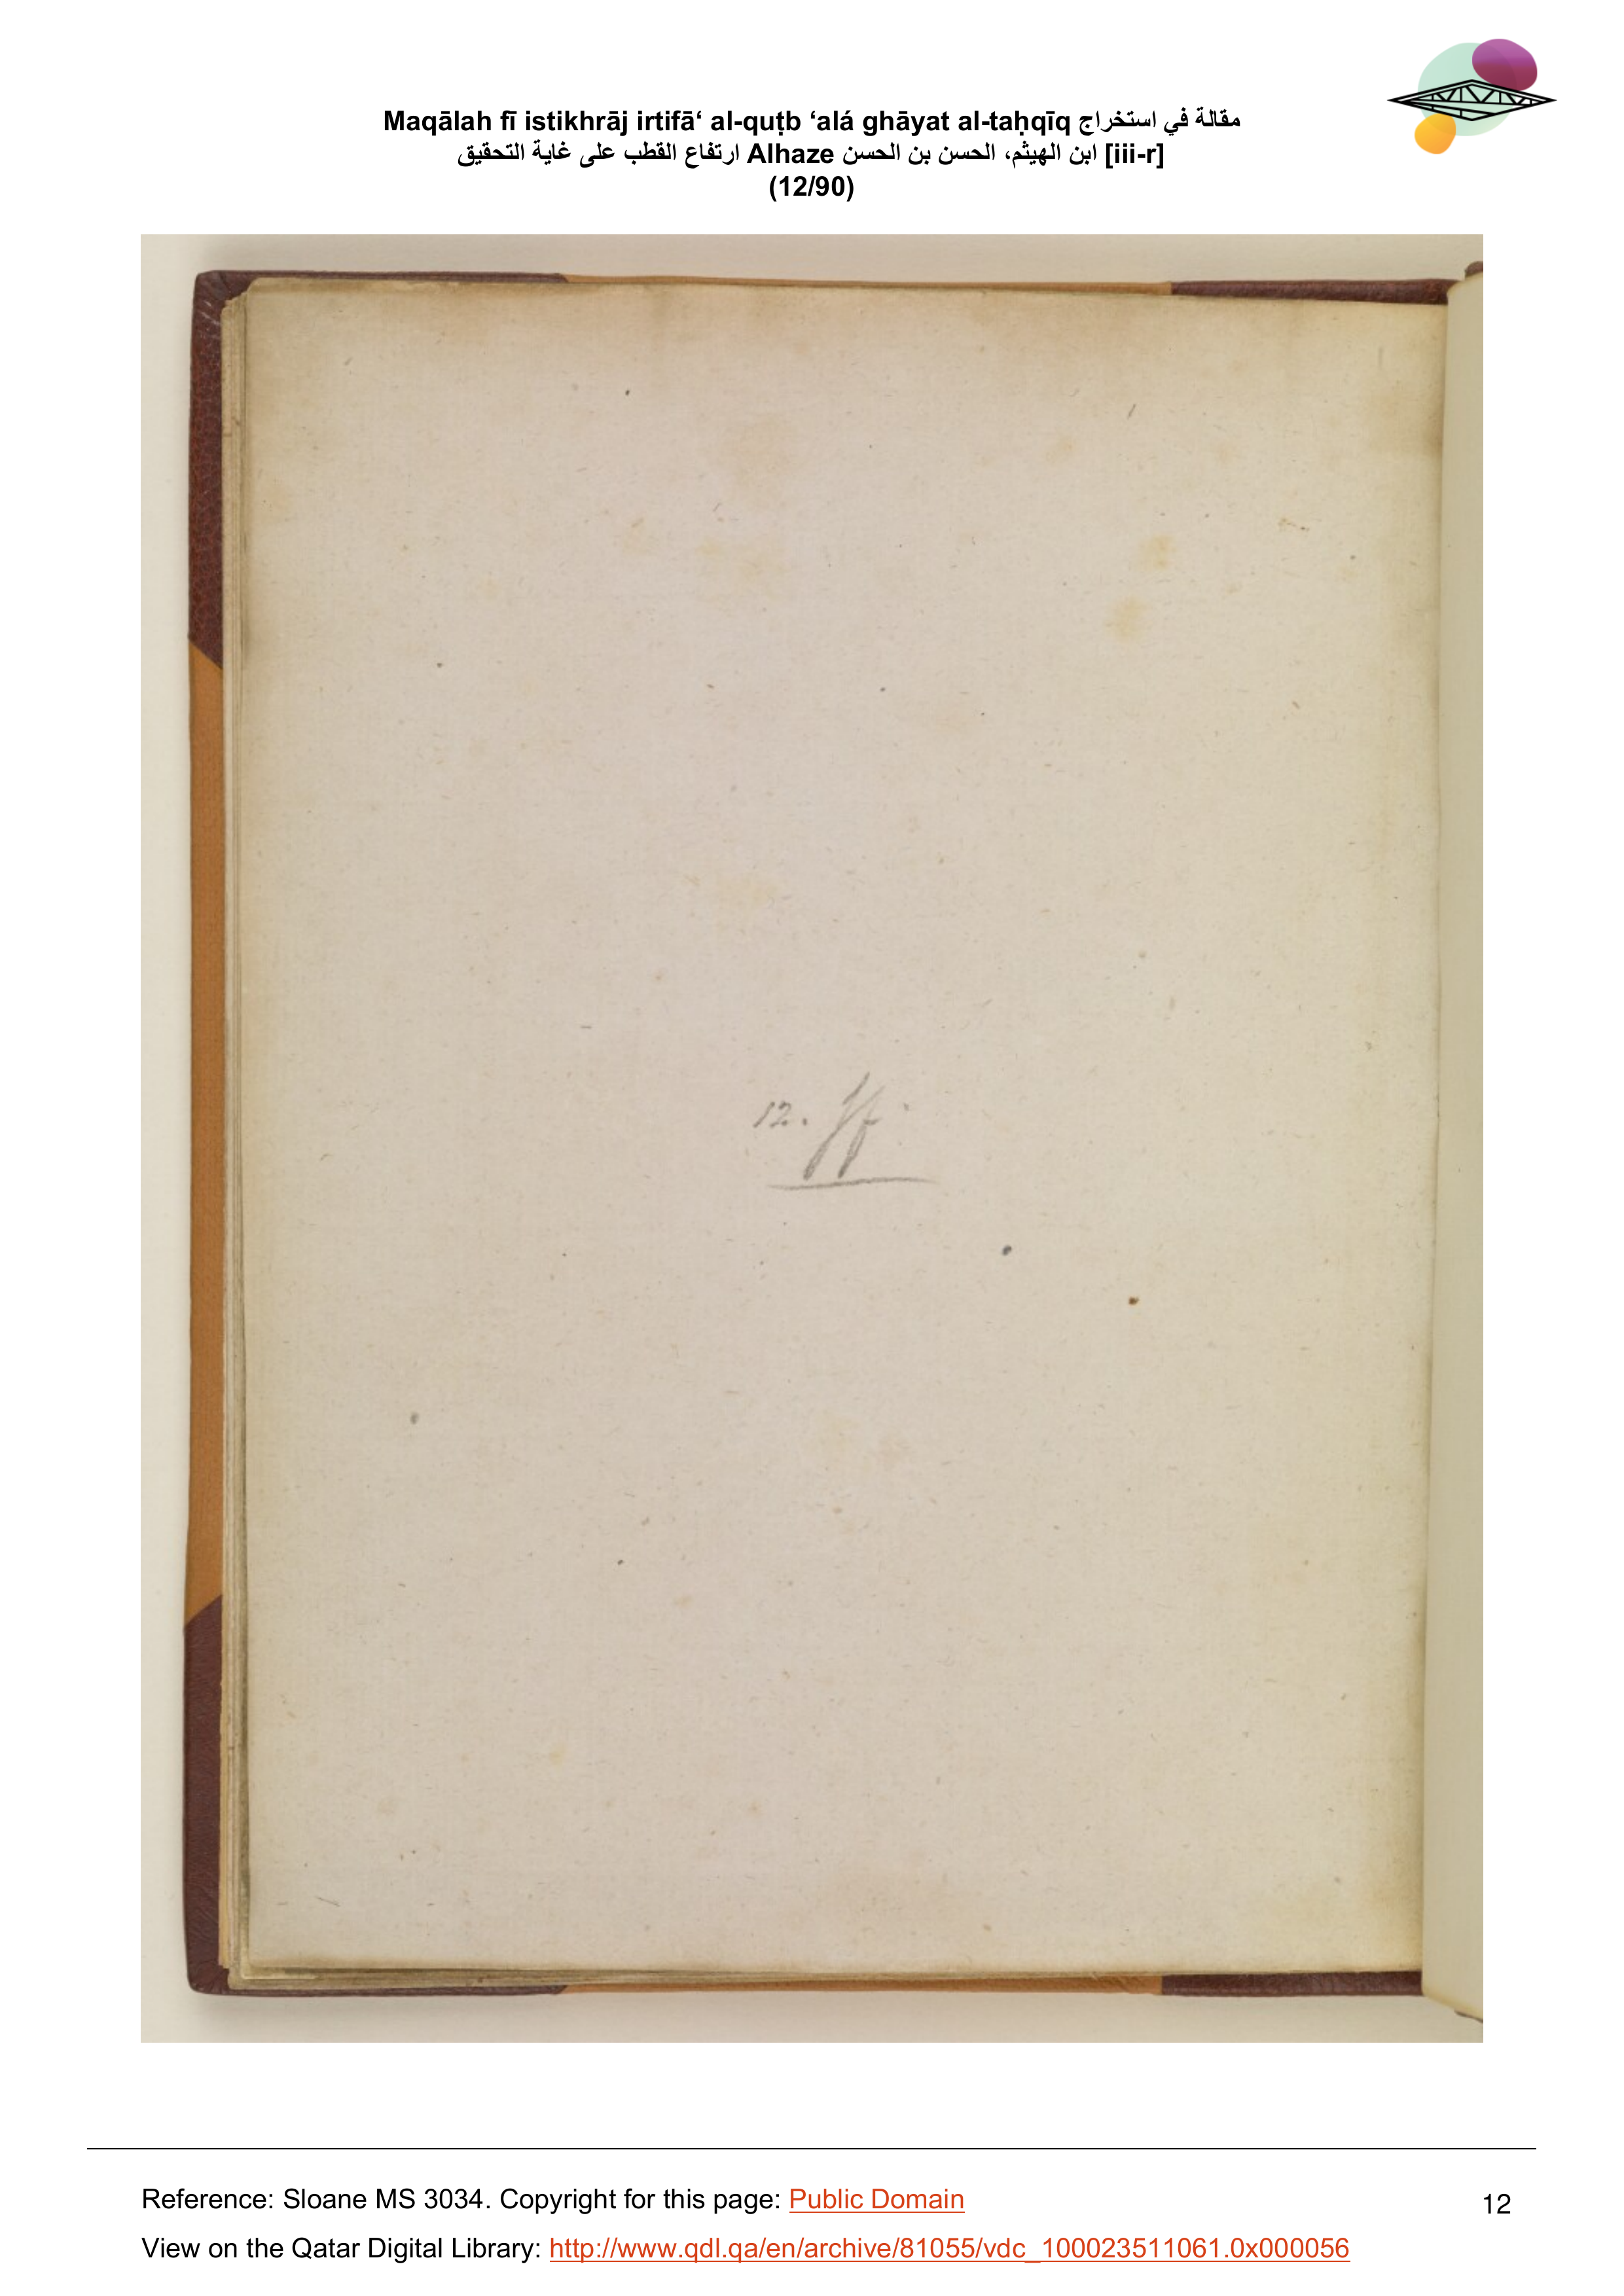 Maqālah fī istikhrāj irtifā‘ al-quṭb ‘alá ghāyat al-taḥqīq مقالة في استخراج
ارتفاع القطب على غاية التحقيق Alhaze ابن الهيثم، الحسن بن الحسن [iii-r]
(12/90)
12. ff.
Reference: Sloane MS 3034. Copyright for this page: Public Domain
12
View on the Qatar Digital Library: http://www.qdl.qa/en/archive/81055/vdc_100023511061.0x000056